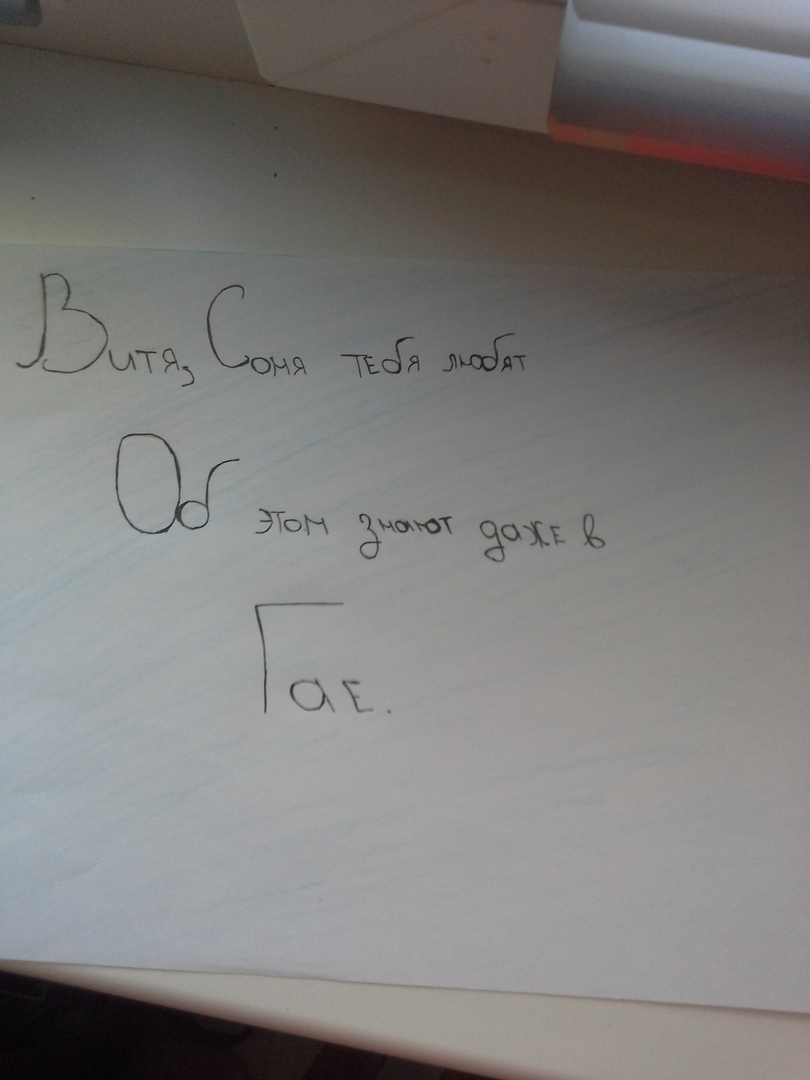 Витя, Соня тебя любят
Об этом знают даже в
Гае.